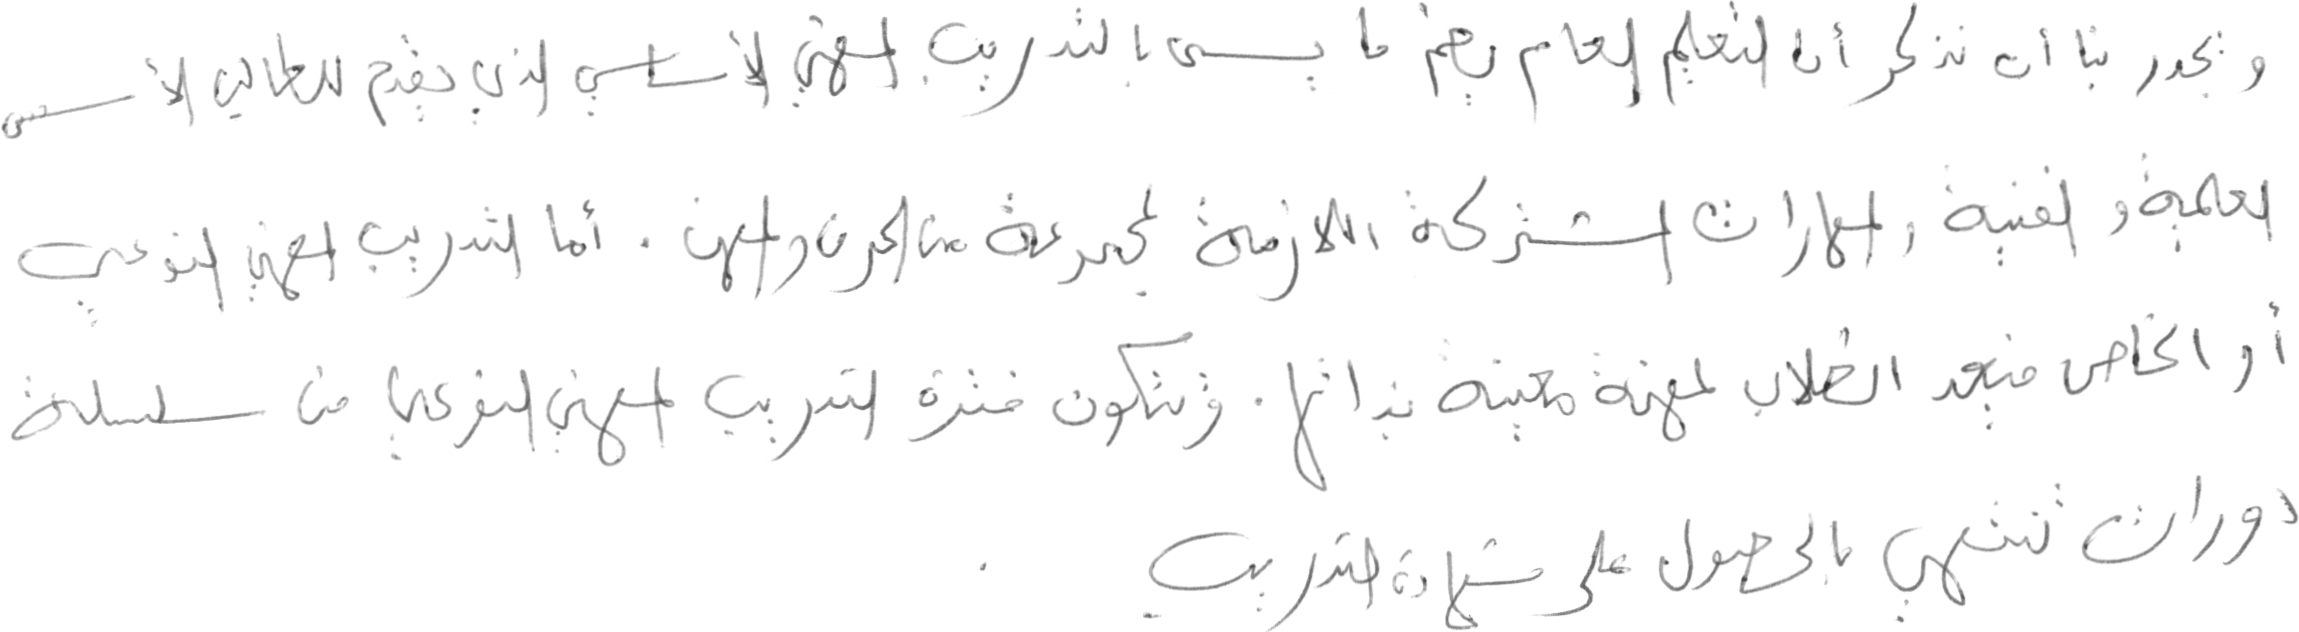 ويجدر بنا أن نذكر أن التعليم العام يضم ما يسمى بالتدريب المهني الأساسي الذي يقدم للطالب الأسس
العلمية والفنية والمهارات المشتركة اللازمة لمجموعة من الحرف والمهن . أما التدريب المهني النوعي
أو الخاص فيعد الطلاب لمهنة معينة بذاتها . وتتكون فترة التدريب المهني النوعي من سلسلة
دورات تنتهي بالحصول على شهادة التدريب .